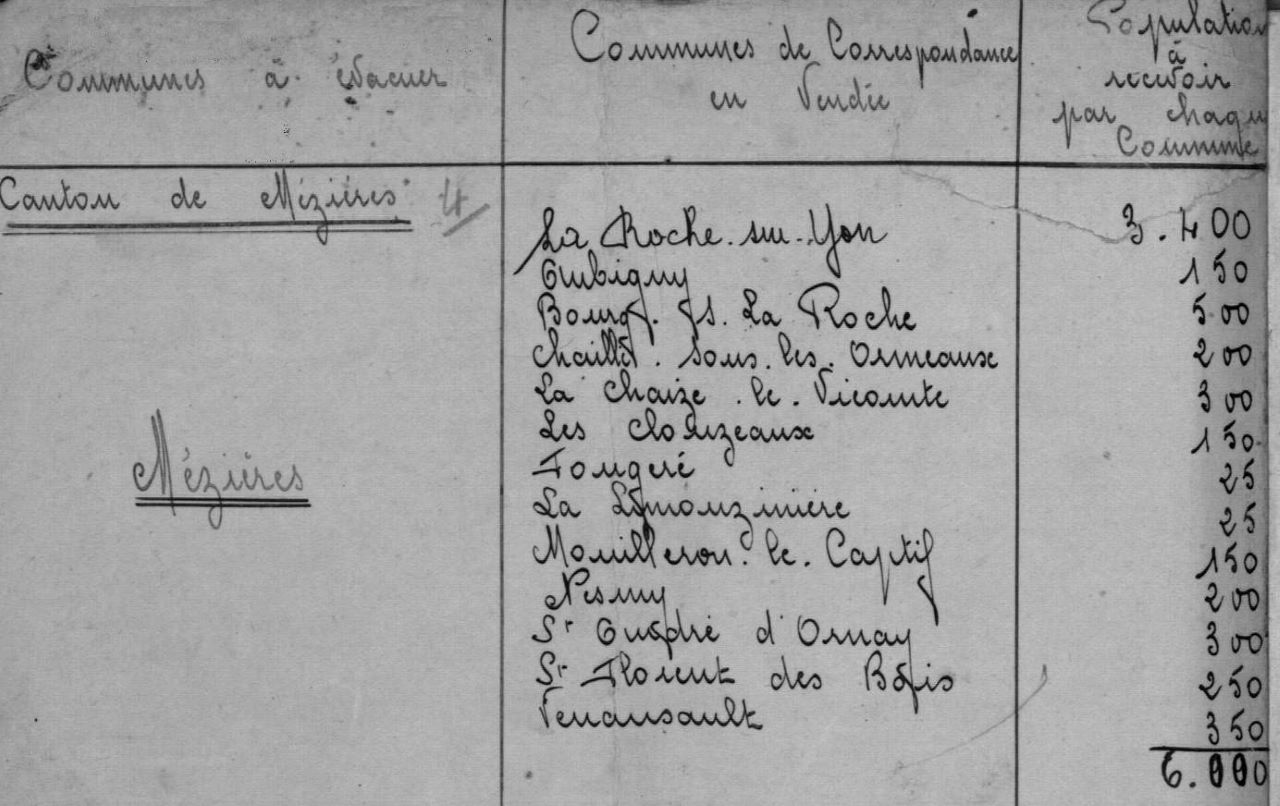 Communes à évacuer
Communes de Correspondance
en Vendée
Population
à
recevoir
par chaque
Commune
Canton de Mézières 4
Mézières
La Roche-sur-Yon 3.400
Aubigny 150
Bourg s. La Roche 500
Chaillé-sous-les-Ormeaux 200
La Chaize-le-Vicomte 300
Les Clouzeaux 150
Fougeré 25
La Limouzinière 25
Mouilleron-le-Captif 150
Nesmy 200
St André d'Ornay 300
St Florent des Bois 250
Venansault 350
6.000